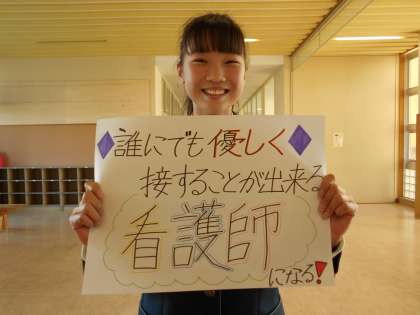 誰にでも優しく
接することが出来る
看護師
になる!